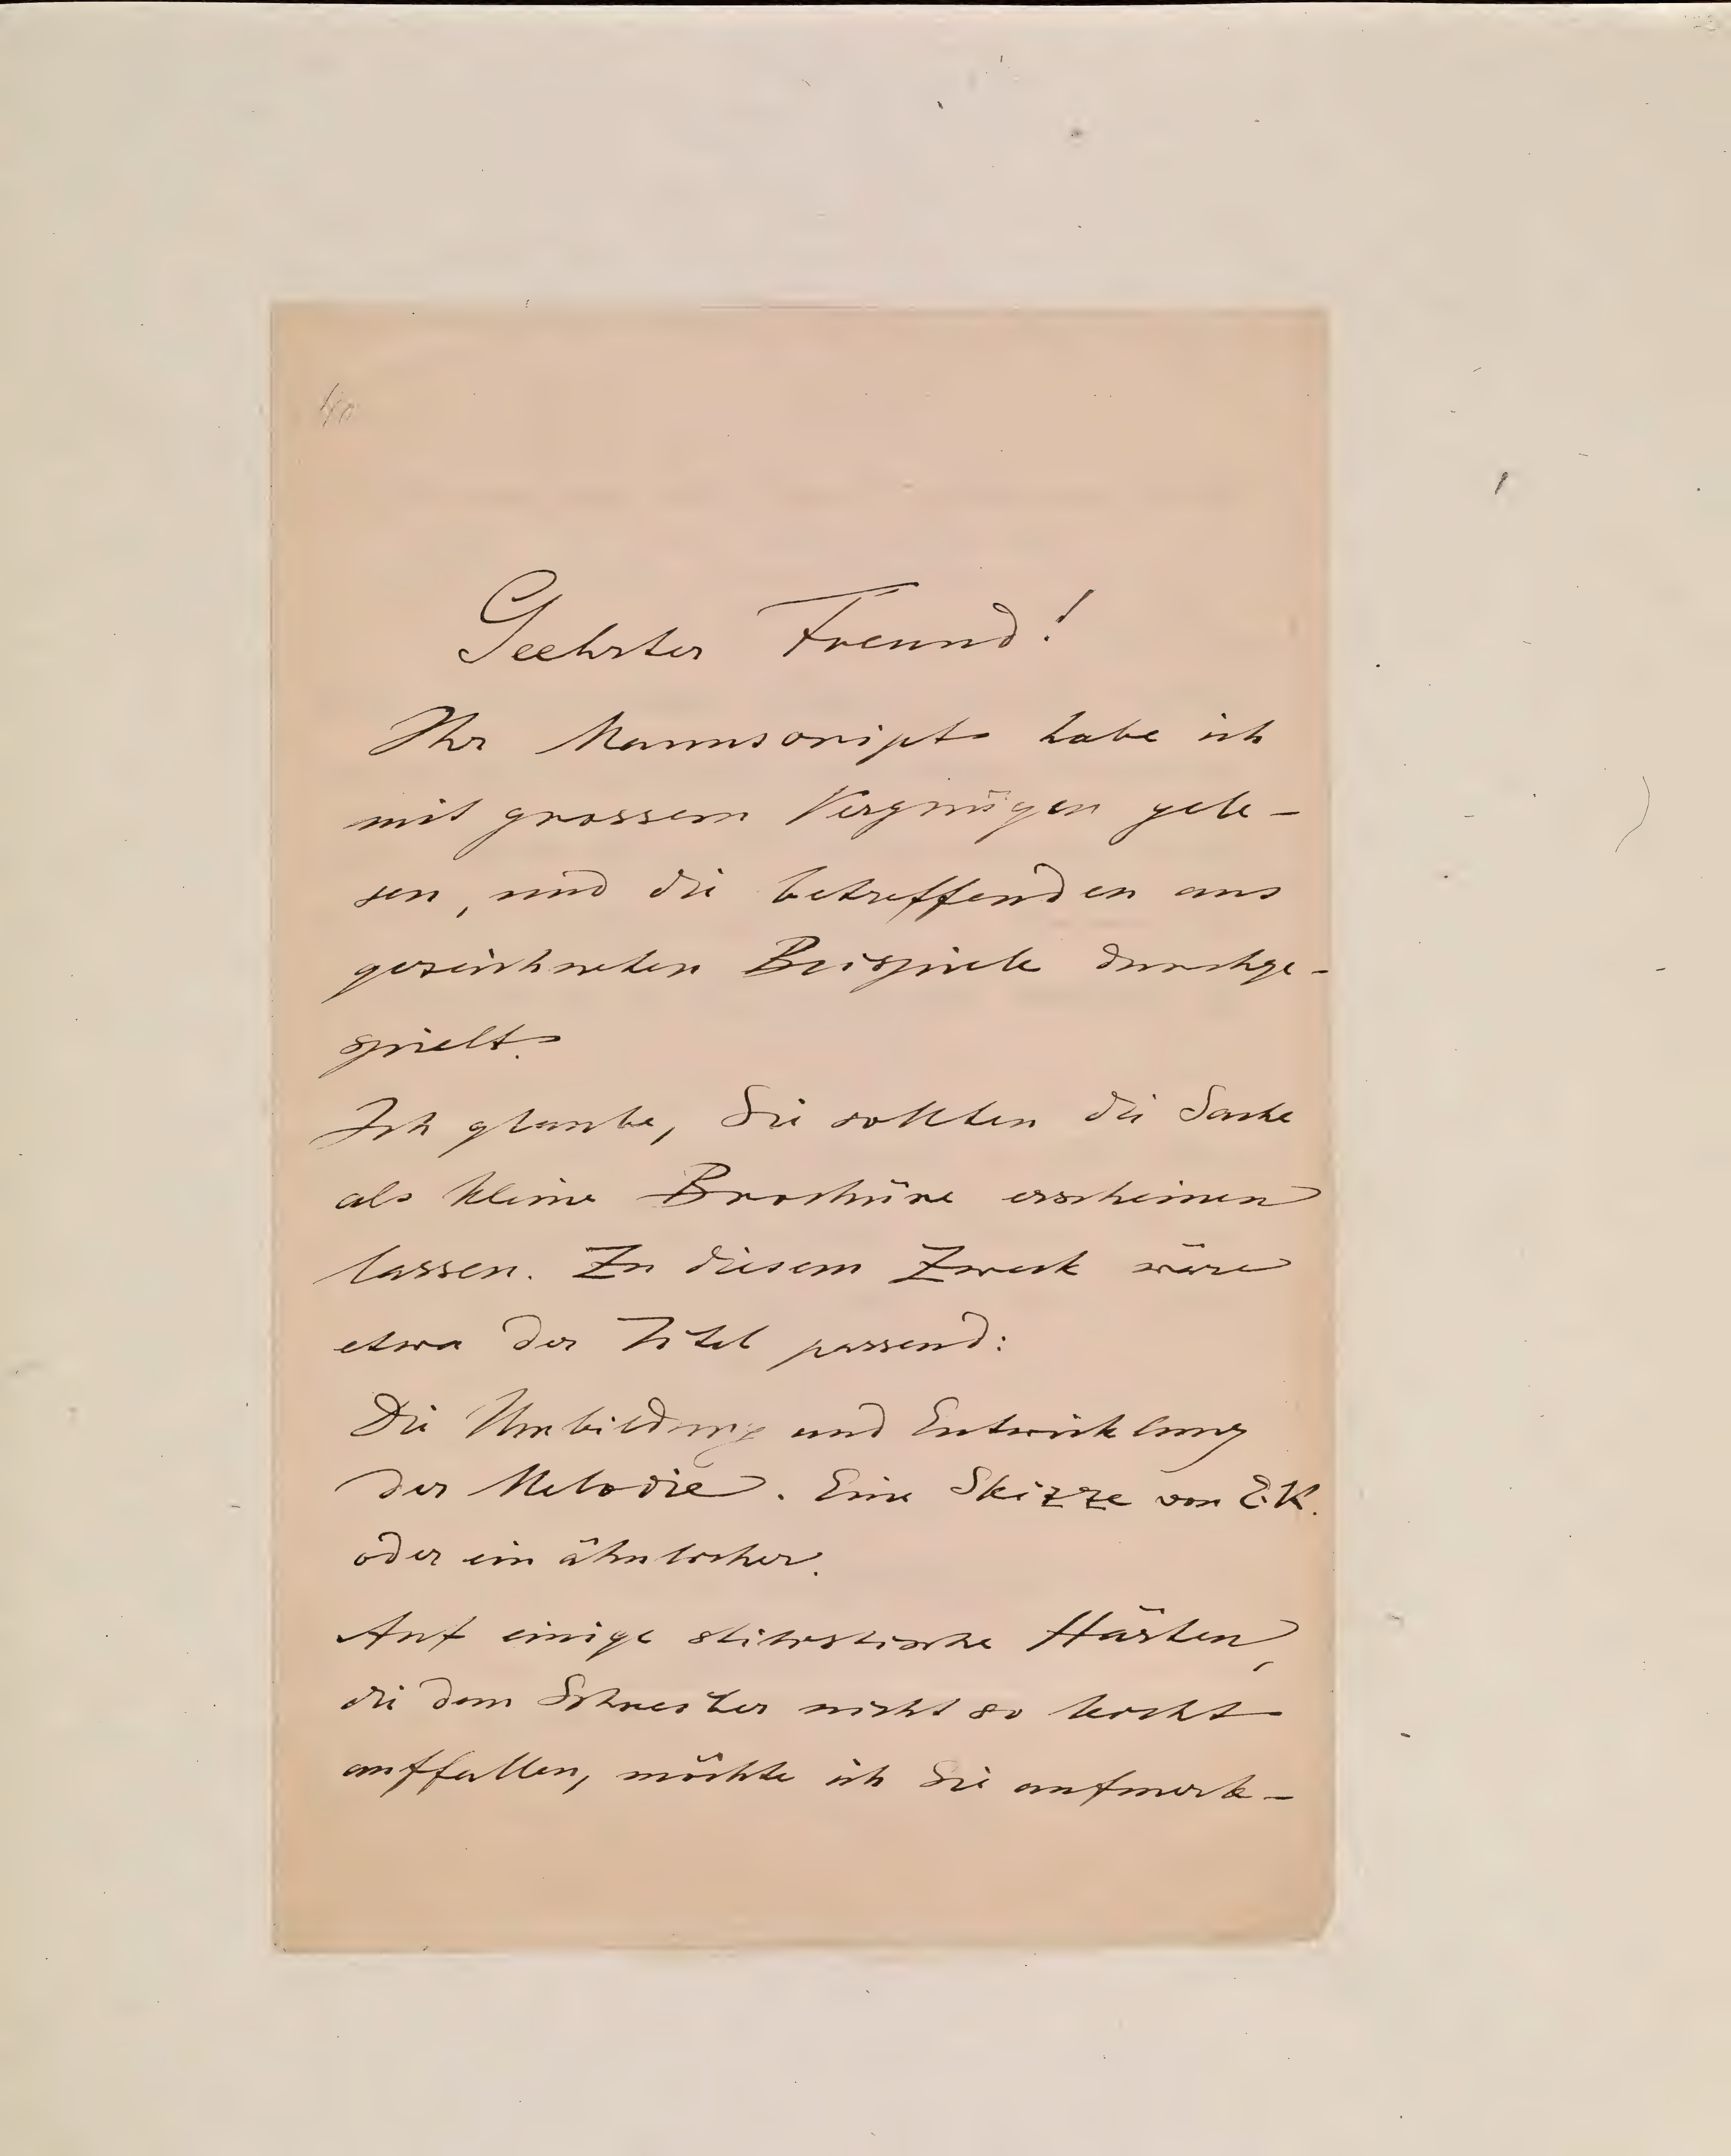 Geehrter Freund!
Ihr Manuscript habe ich
mit grossem Vergnügen gele-
sen, und die betreffenden aus
gezeichneten Beispiele durchge-
spielt.
Ich glaube, Sie sollten die Sache
als kleine Brochüre erscheinen
lassen. Zu diesem Zweck wäre
etwa der Titel passend:
Die Umbildung und Entwicklung
der Melodie. Eine Skizze von E.K.
oder ein ähnlicher.
Auf einige stilistische Härten,
die dem Schreiber nicht so leicht
auffallen, möchte ich Sie aufmerk-